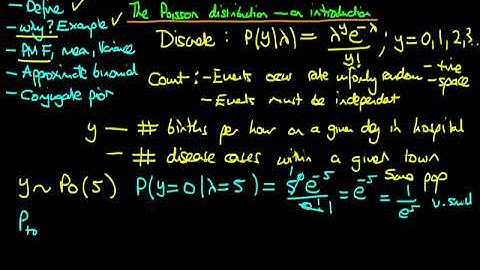 - Define ✓
- Why? Example ✓
- PMF, mean, Variance
- Approximate binomial
- Conjugate prior
The Poisson distribution - an introduction
Discrete : P(y|λ) = λ^y e^-λ / y! ; y = 0, 1, 2, 3..
Count : - Events occur rate uniformly random - time
- space
- Events must be independent
y — # births per hour on a given day in hospital
— # disease cases within a given town
Some pop
y ~ Po(5) P(y=0|λ=5) = 5^0 e^-5 / 0! = e^-5 = 1 / e^5 v. small